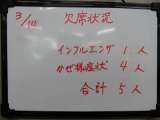 3/10 欠席状況
インフルエンザ 1人
かぜ様症状 4人
合計 5人